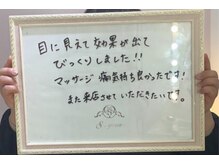 目に見えて効果が出て
びっくりしました!!
マッサージ 痛気持ち良かったです!
また来店させていただきたいです。